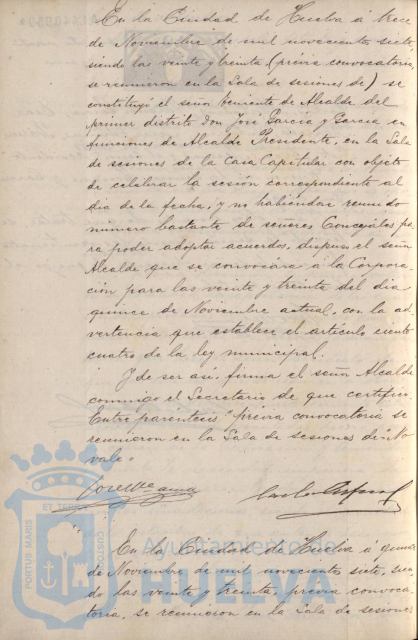 En la Ciudad de Huelva á trece
de Noviembre de mil novecientos siete,
siendo las veinte y treinta (previa convocatoria,
se reunieron en la Sala de sesiones de) se
constituyó el señor Teniente de Alcalde del
primer distrito Don José García y García en
funciones de Alcalde Presidente, en la Sala
de sesiones de la Casa Capitular con objeto
de celebrar la sesión correspondiente al
día de la fecha, y no habiendose reunido
número bastante de señores Concejales pa
ra poder adoptar acuerdos, dispuso el señor
Alcalde que se convocára á la Corpora
ción para las veinte y treinta del dia
quince de Noviembre actual, con la ad
vertencia que establece el artículo ciento
cuatro de la ley municipal.
Y de ser así, firma el señor Alcalde
conmigo el Secretario de que certifico.
Entre paréntesis "previa convocatoria se
reunieron en la Sala de sesiones de" No
vale =
En la Ciudad de Huelva á quince
de Noviembre de mil novecientos siete, sien
do las veinte y treinta, previa convoca
toria, se reunieron en la Sala de sesiones
PORTUS MARIS
ET TERRAE
CUSTODIA
Ayuntamiento de
HUELVA